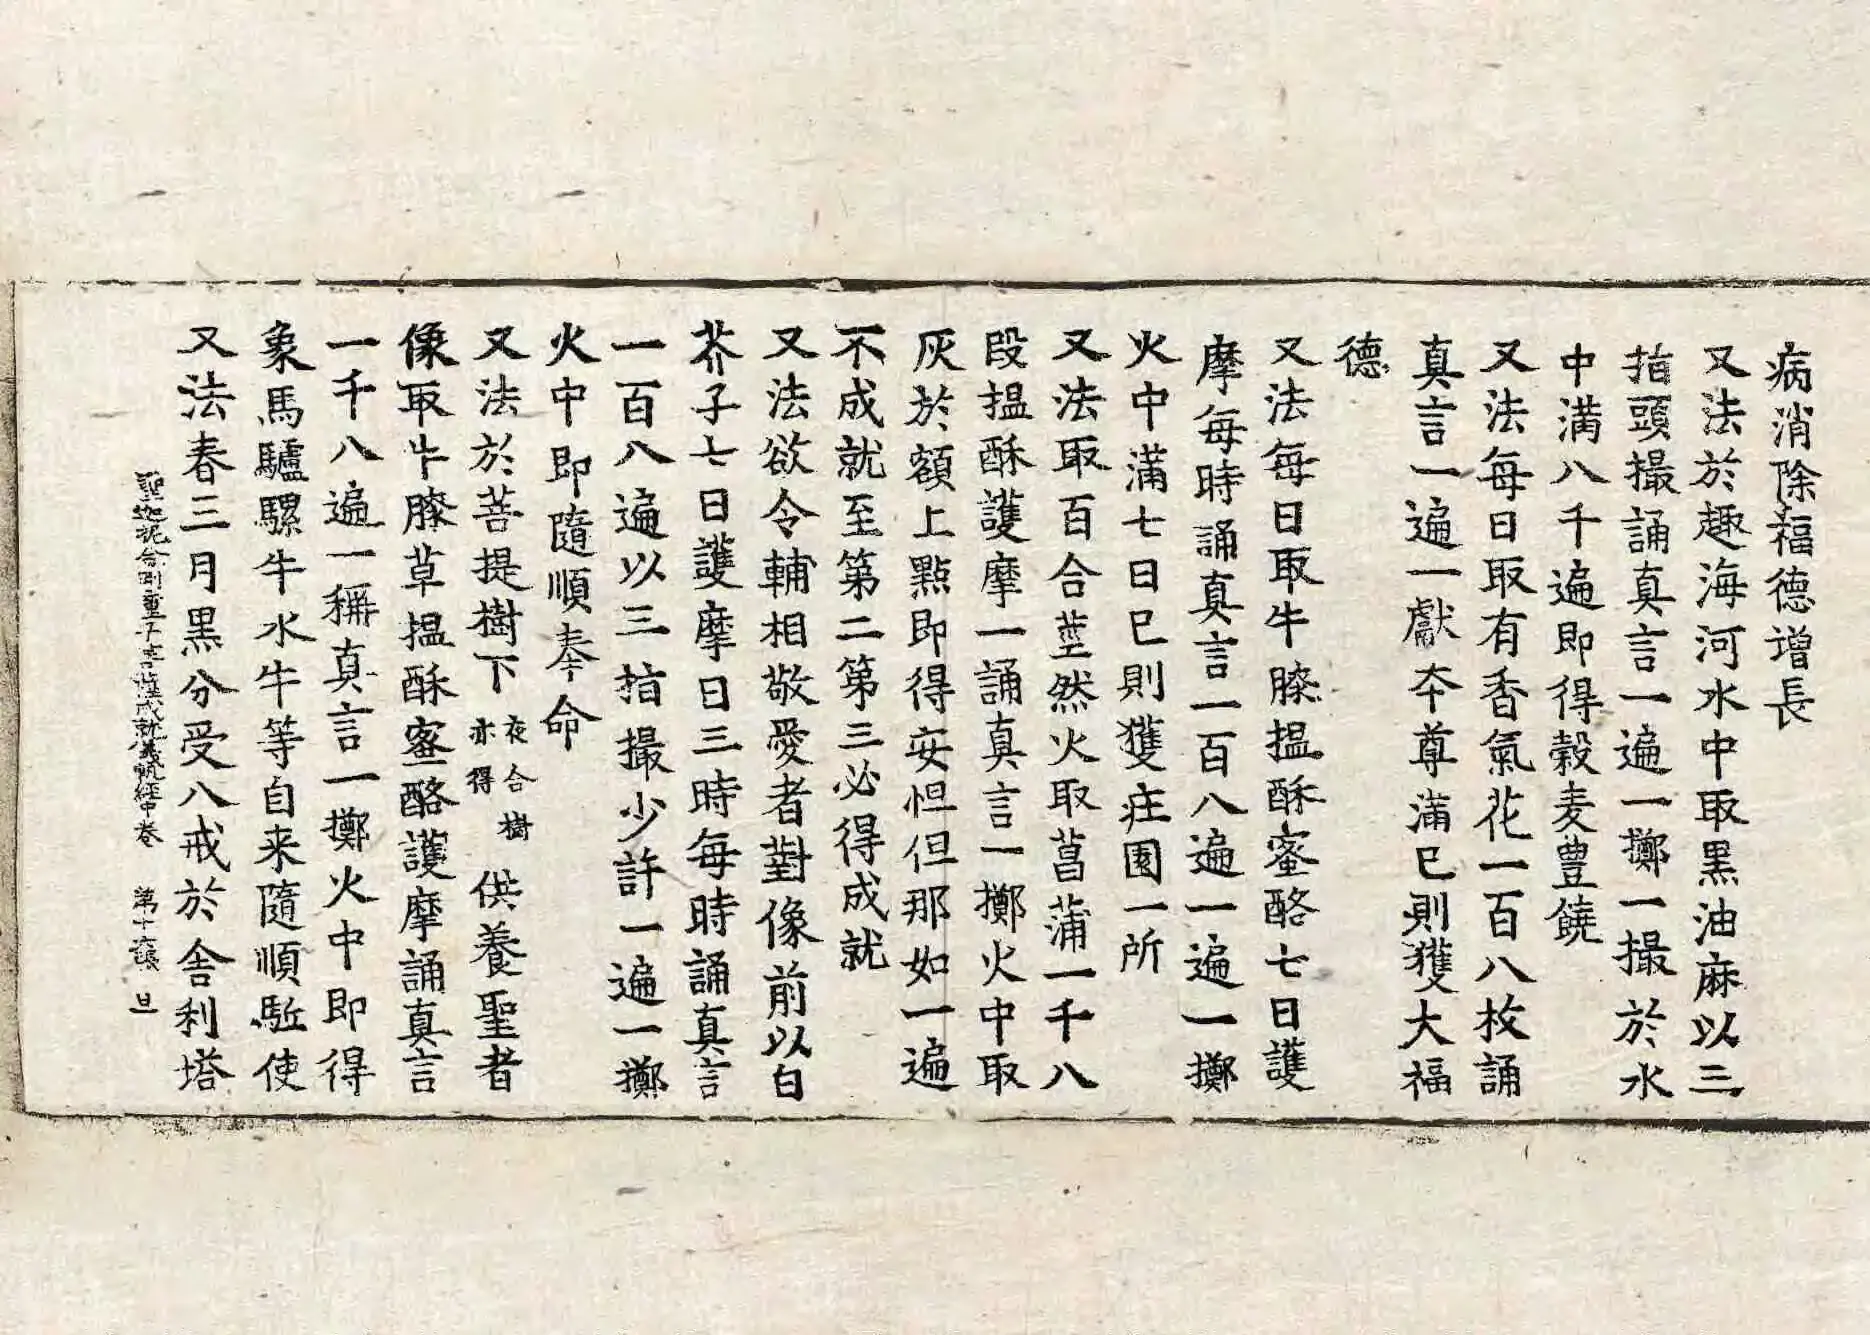 病消除福德增長
又法於趣海河水中取黑油麻以三
指頭撮誦真言一遍一擲一撮於水
中満八千遍即得穀麦豊饒
又法每日取有香氣花一百八枚誦
真言一遍一獻夲尊滿已則獲大福
德
又法每日取牛膝搵酥蜜酪七日護
摩每時誦真言一百八遍一遍一擲
火中滿七日已則獲庄園一所
又法取百合莖然火取菖蒲一千八
段搵酥護摩一誦真言一擲火中取
灰於額上點即得安怛但那如一遍
不成就至第二第三必得成就
又法欲令輔相敬愛者對像前以白
芥子七日護摩日三時每時誦真言
一百八遍以三指撮少許一遍一擲
火中即隨順奉命
又法於菩提樹下夜合樹亦得供養聖者
像取牛膝草搵酥蜜酪護摩誦真言
一千八遍一稱真言一擲火中即得
象馬驢騾牛水牛等自来隨順駈使
又法春三月黒分受八戒於舍利塔
聖迦抳忿怒金剛童子菩薩成就儀軌經中卷 第十張 旦